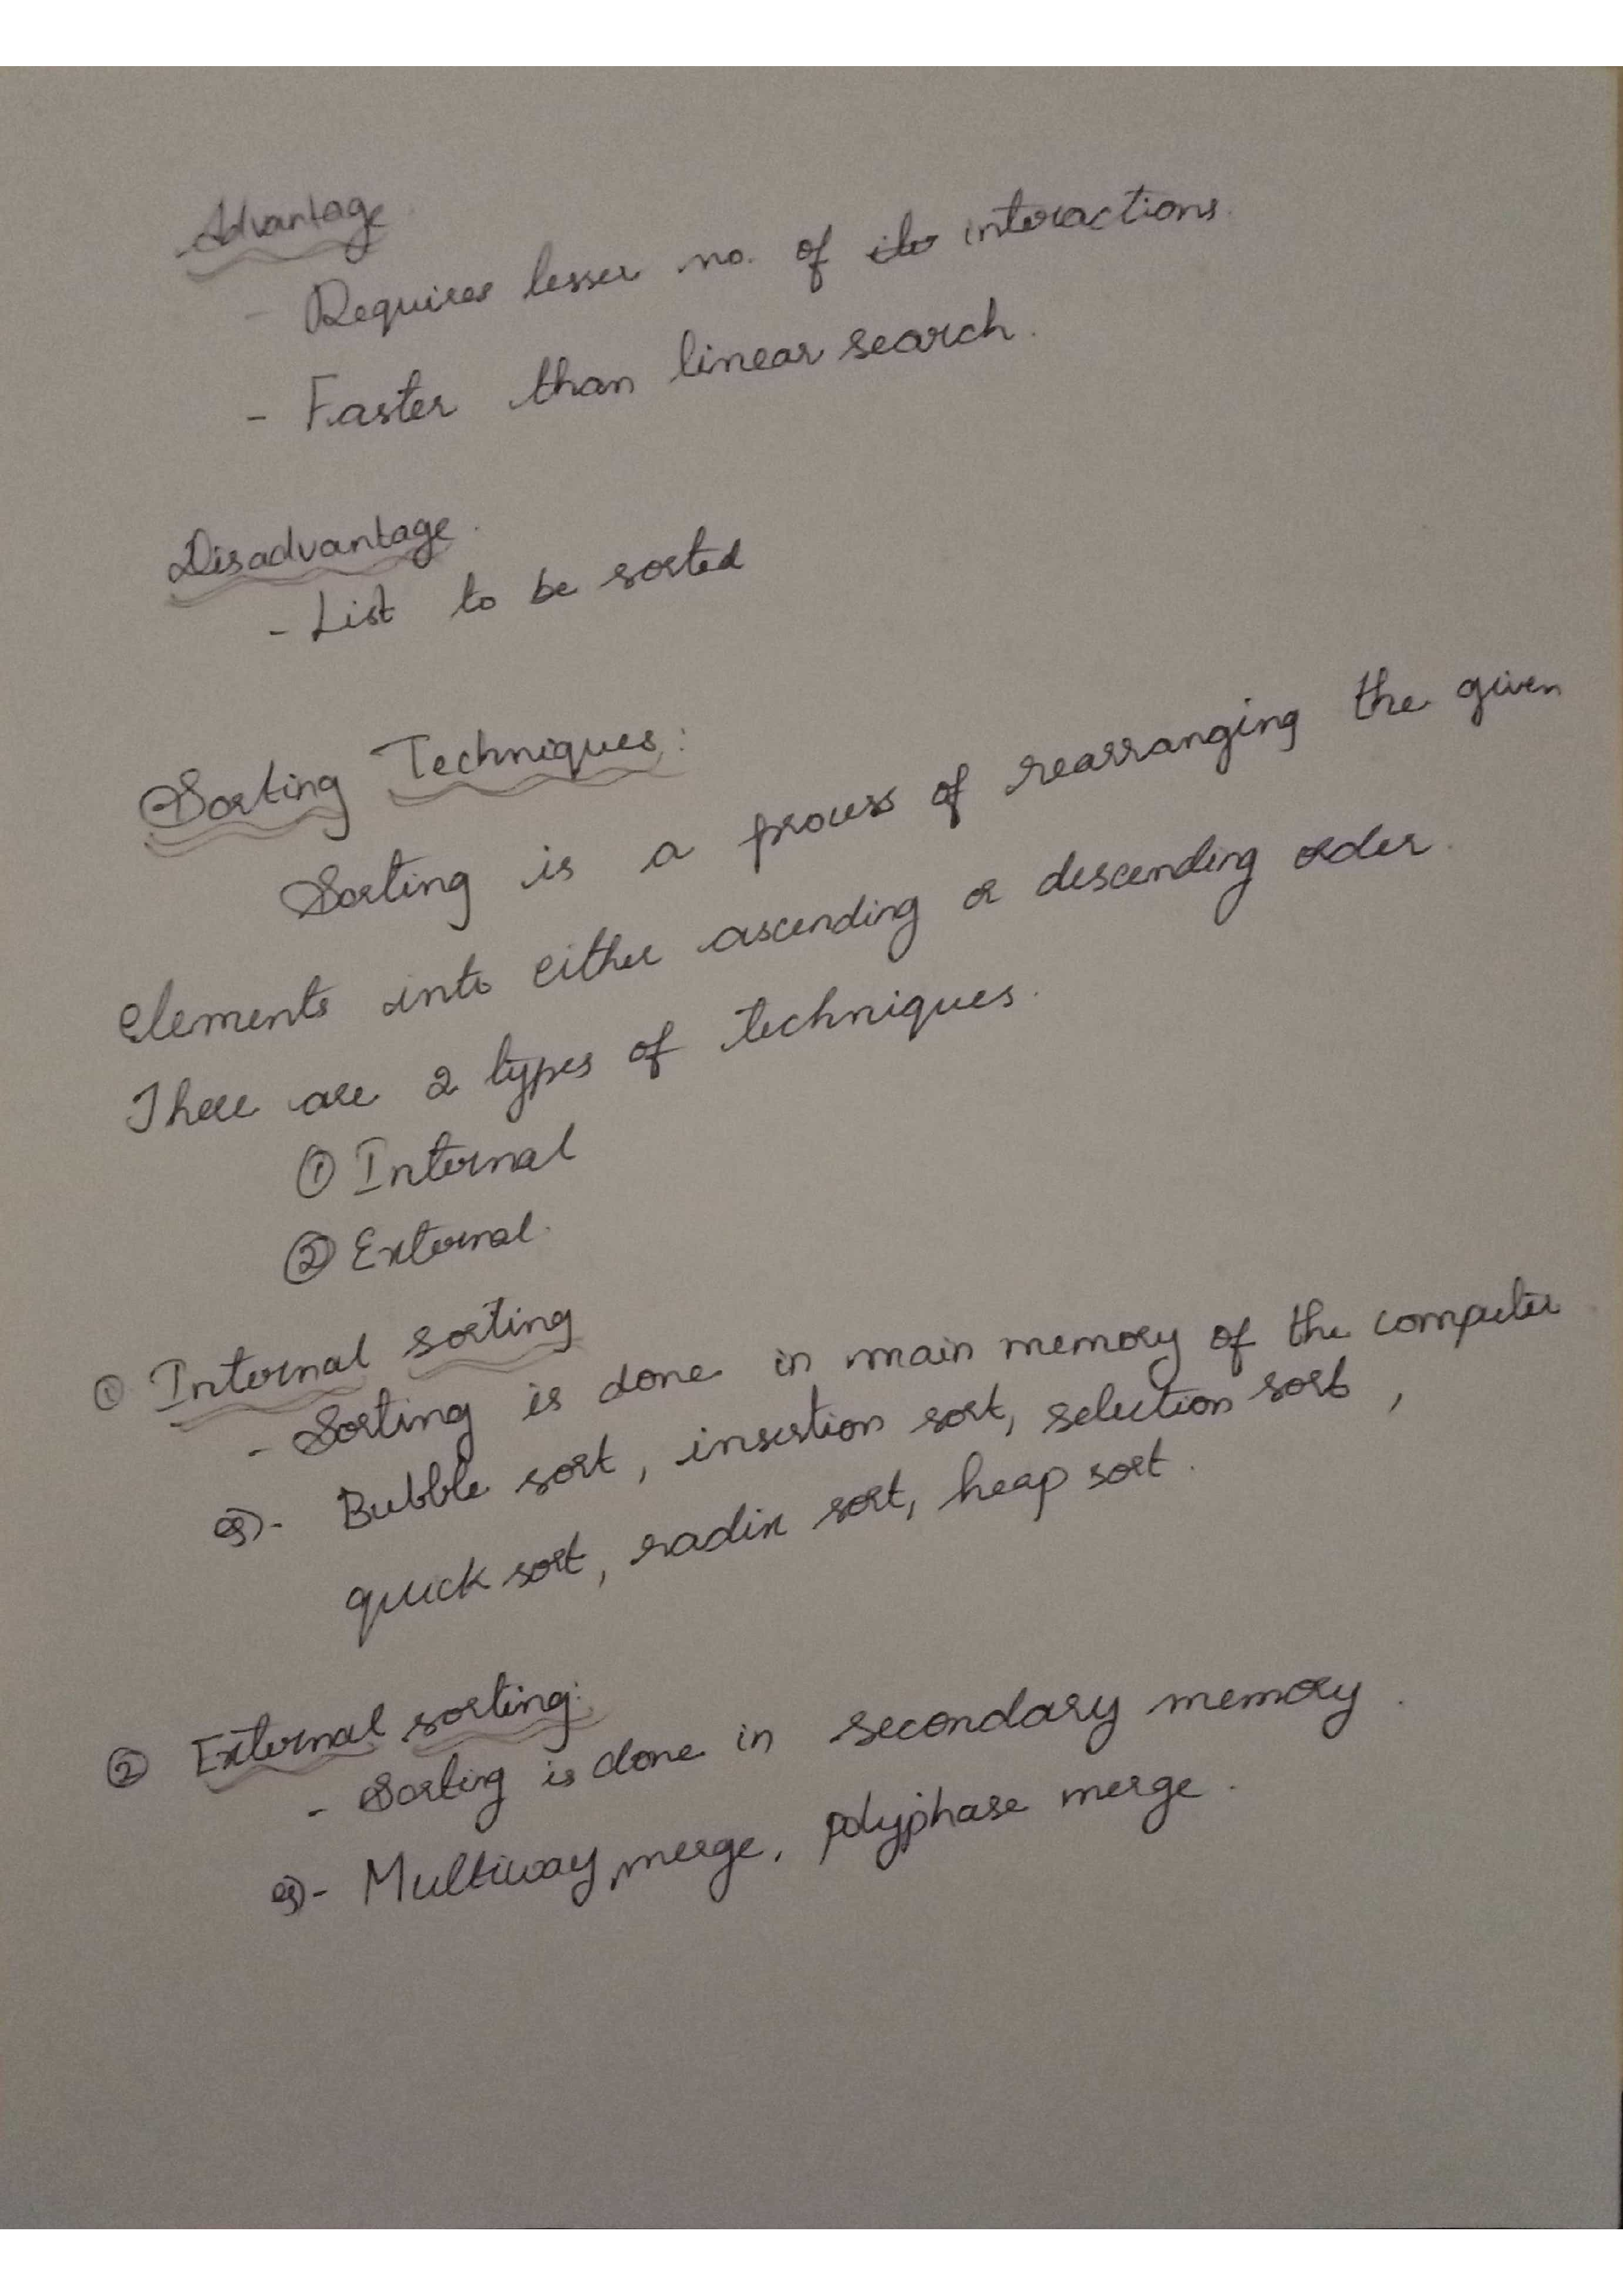 Advantage
- Requires lesser no. of interactions.
- Faster than linear search.
Disadvantage.
- List to be sorted
Sorting Techniques:
Sorting is a process of rearranging the given
elements into either ascending or descending order.
There are 2 types of techniques.
① Internal
② External.
① Internal sorting
- Sorting is done in main memory of the computer
eg)- Bubble sort, insertion sort, selection sort,
quick sort, radix sort, heap sort.
② External sorting:
- Sorting is done in secondary memory.
eg)- Multiway merge, polyphase merge.